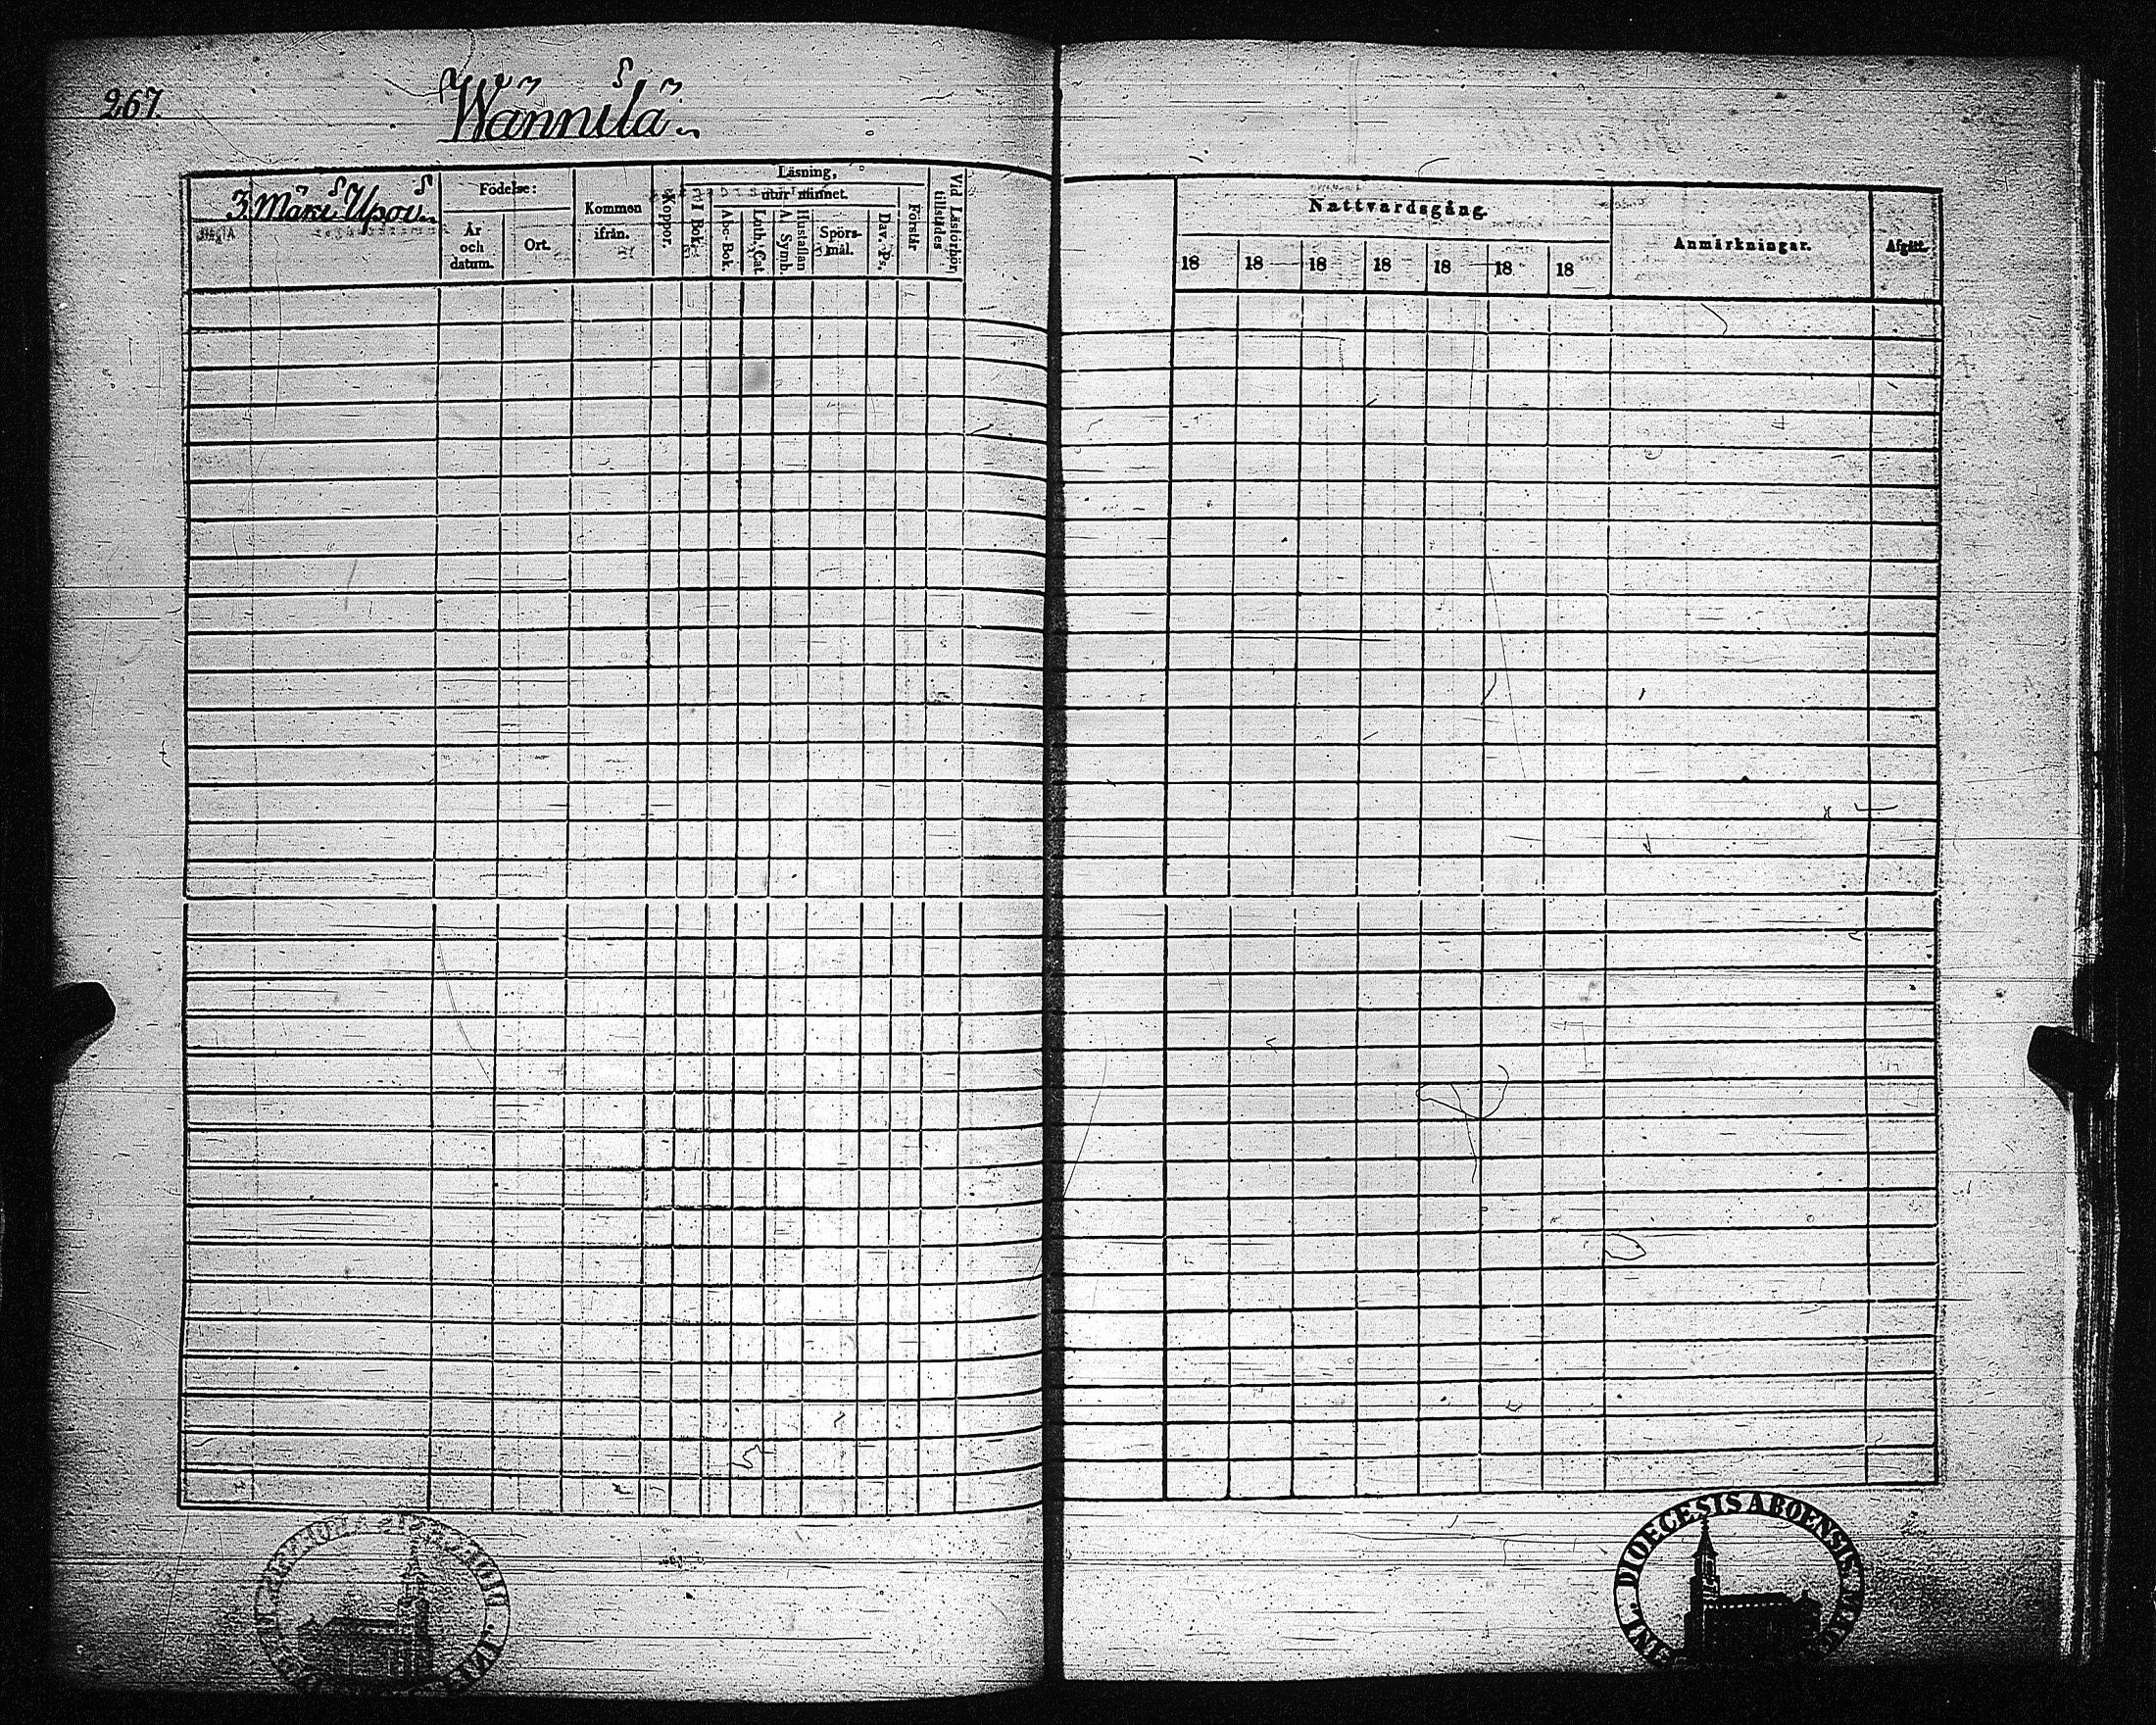 267.
Wännilä.
3. Mäki Upoi.
Födelse:
År och datum.
Ort.
Kommen ifrån.
Koppor.
Läsning,
I Bok.
utur minnet.
Abc-Bok.
Luth. Cat.
Hustaflan A. Symb.
Spörsmål.
Dav. Ps.
Förstår
Vid Läsförhör tillstädes
Nattvardsgång.
18 18 18 18 18 18 18
Anmärkningar.
Afgått.
DIOECESIS ABOENSIS